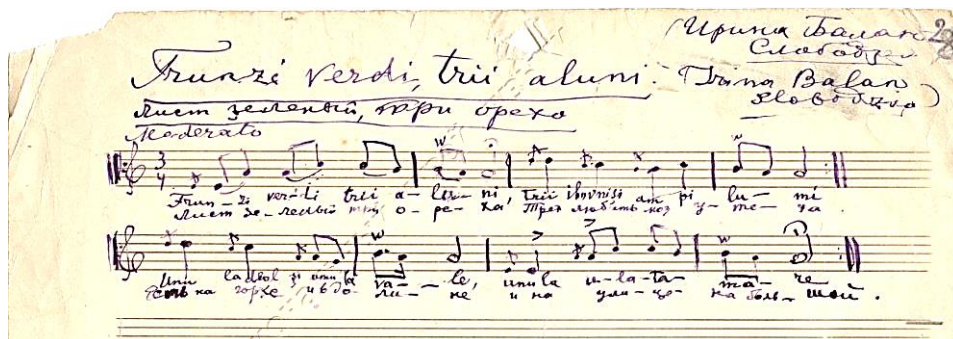 Ирина Балан 28
Слободзея
Frunzi verdi, trii aluni. (Irina Balan
Slobodzea)
Лист зеленый, три ореха
Moderato
3
4
Frun-zi verdi trii a-lu-ni, trii ibovnisi am pi lu-mi
Лист зе-леный три о-ре-ха, Трёх любить мог у-те-ха.
Unu la deal și unu la va-le, unu la u-la-ta-ma-re
на горке и в до-ли-не и на ули-це на боль-шой.